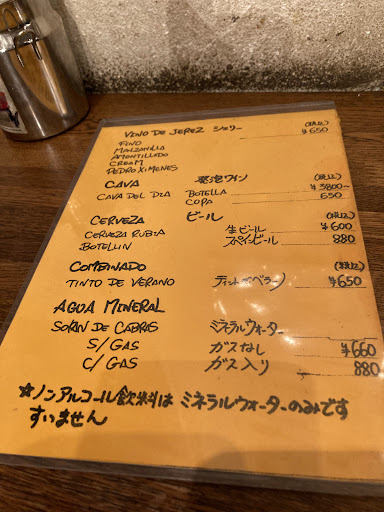 VINO DE JEREZ シェリー (税込)
FINO ¥650
MANZANILLA
AMONTILLADO
CREAM
PEDRO XIMENES
CAVA 発泡ワイン (税込)
CAVA DEL DIA BOTELLA ¥3800-
COPA 650
CERVEZA ビール (税込)
CERVEZA RUBIA 生ビール ¥600
BOTELLIN スペインビール 880
COMBINADO (税込)
TINTO DE VERANO ティントデベラーノ ¥650
AGUA MINERAL
SOLAN DE CABRAS ミネラルウォーター
S/GAS ガスなし ¥660
C/GAS ガス入り 880
☆ノンアルコール飲料は ミネラルウォーターのみです
すいません